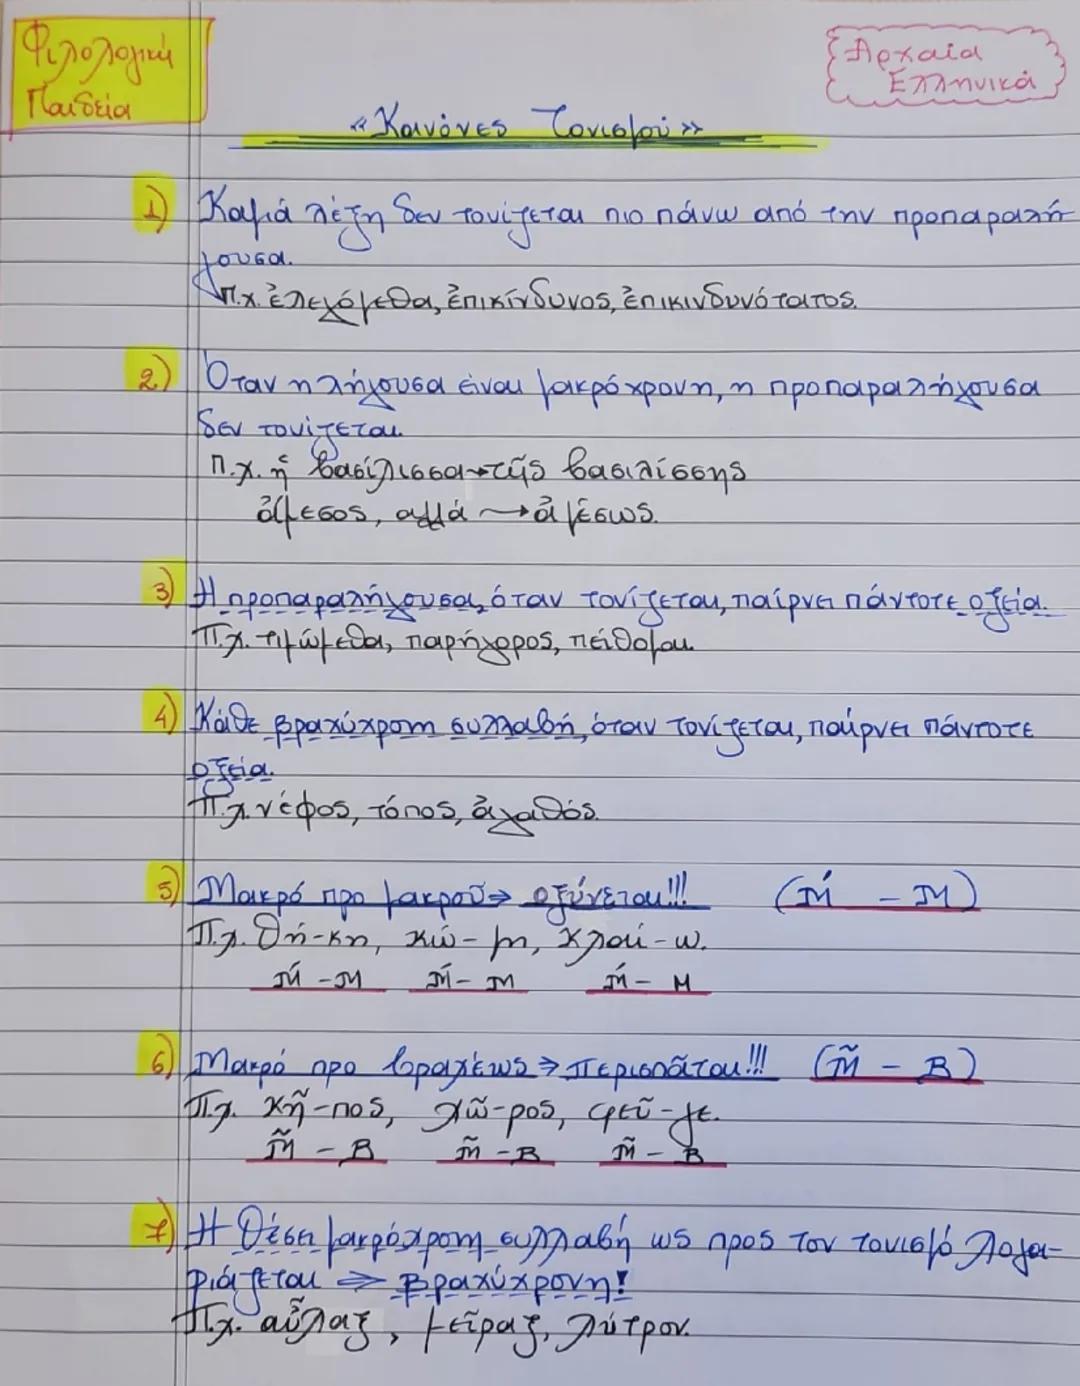 Φιλολογική
Παιδεία
Αρχαία
Ελληνικά
«Κανόνες Τονισμού»
1) Καμιά λέξη δεν τονίζεται πιο πάνω από την προπαραλή-
γουσα.
Π.χ. ἐλεγόμεθα, ἐπικίνδυνος, ἐπικινδυνότατος.
2) Όταν η λήγουσα είναι μακρόχρονη, η προπαραλήγουσα
δεν τονίζεται.
Π.χ. ἡ βασίλισσα→τῆς βασιλίσσης
ἄμεσος, αλλά → ἀμέσως.
3) Η προπαραλήγουσα, όταν τονίζεται, παίρνει πάντοτε οξεία.
Π.χ. τιμώμεθα, παρήγορος, πείθομαι.
4) Κάθε βραχύχρονη συλλαβή, όταν τονίζεται, παίρνει πάντοτε
οξεία.
Π.χ. νέφος, τόπος, ἀγαθός.
5) Μακρό προ μακρού⇒ οξύνεται!!! (Μ́ - Μ)
Π.χ. θή-κη, κώ-μη, κλαί-ω.
Μ́ - Μ Μ́ - Μ Μ́ - Μ
6) Μακρό προ βραχέως⇒ περισπάται!!! (Μ̃ - Β)
Π.χ. κῆ-πος, χῶ-ρος, φεῦ-γε.
Μ̃ - Β Μ̃ - Β Μ̃ - Β
7) Η θέσει μακρόχρονη συλλαβή ως προς τον τονισμό λογα-
ριάζεται ⇒ βραχύχρονη!
Π.χ. αὖλαξ, μεῖραξ, λύτρον.